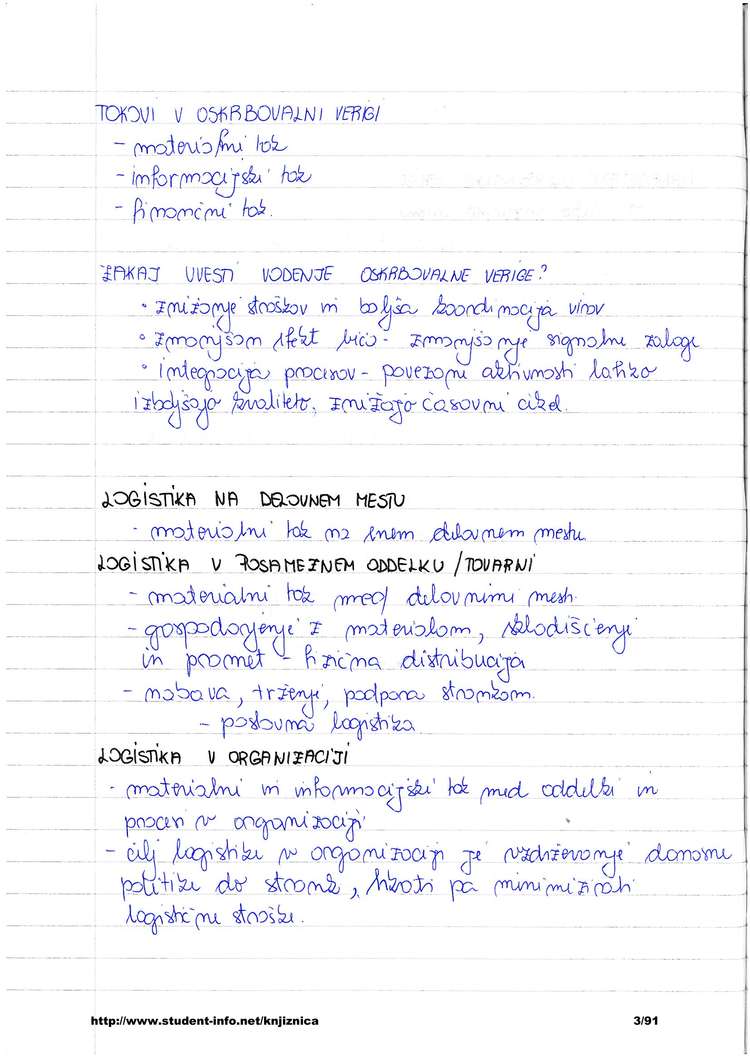 TOKOVI V OSKRBOVALNI VERIGI
- materialni tok
- informacijski tok
- finančni tok.
ZAKAJ UVESTI VODENJE OSKRBOVALNE VERIGE?
• znižanje stroškov in boljša koordinacija virov
• zmanjšan efekt biča - zmanjšanje signalne zaloge
• integracija procesov - povezani aktivnosti lahko
izboljšajo kvaliteto, znižajo časovni cikel.
LOGISTIKA NA DELOVNEM MESTU
- materialni tok na enem delovnem mestu
LOGISTIKA V POSAMEZNEM ODDELKU / TOVARNI
- materialni tok med delovnimi mesti.
- gospodarjenje z materialom, skladiščenje
in promet - fizična distribucija
- nabava, trženje, podpora strankam.
- poslovna logistika
LOGISTIKA V ORGANIZACIJI
- materialni in informacijski tok med oddelki in
procesi v organizaciji
- cilj logistike v organizaciji je vzdrževanje
politike do strank, hkrati pa minimizirati
logistične stroške.
http://www.student-info.net/knjiznica 3/91